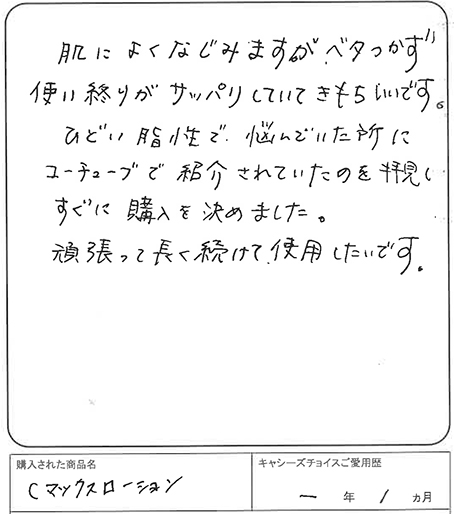 肌によくなじみますが、ベタつかず
使い終りがサッパリしていてきもちいいです。
ひどい脂性で、悩んでいた所に
ユーチューブで紹介されていたのを拝見し
すぐに購入を決めました。
頑張って長く続けて使用したいです。
購入された商品名
Cマックスローション
キャシーズチョイスご愛用歴
一 年 1 ヵ月